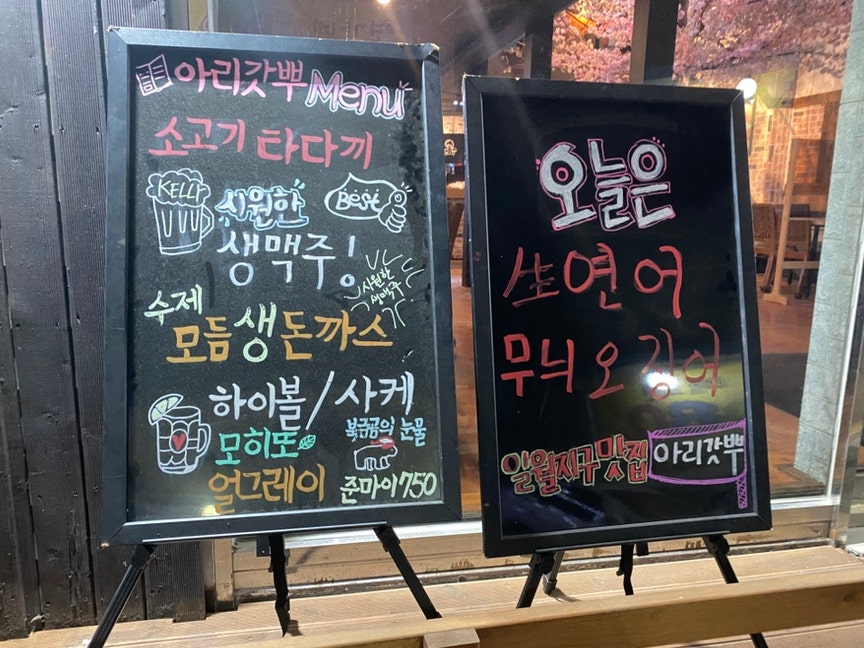 아리갓뿌 Menu
소고기 타다끼
KELLY
시원한
Best
생맥주!
시원한
생맥주
수제
모듬생돈까스
하이볼/사케
모히또
북극곰의 눈물
얼그레이
준마이750
오늘은
生연어
무늬오징어
일월지구맛집
아리갓뿌